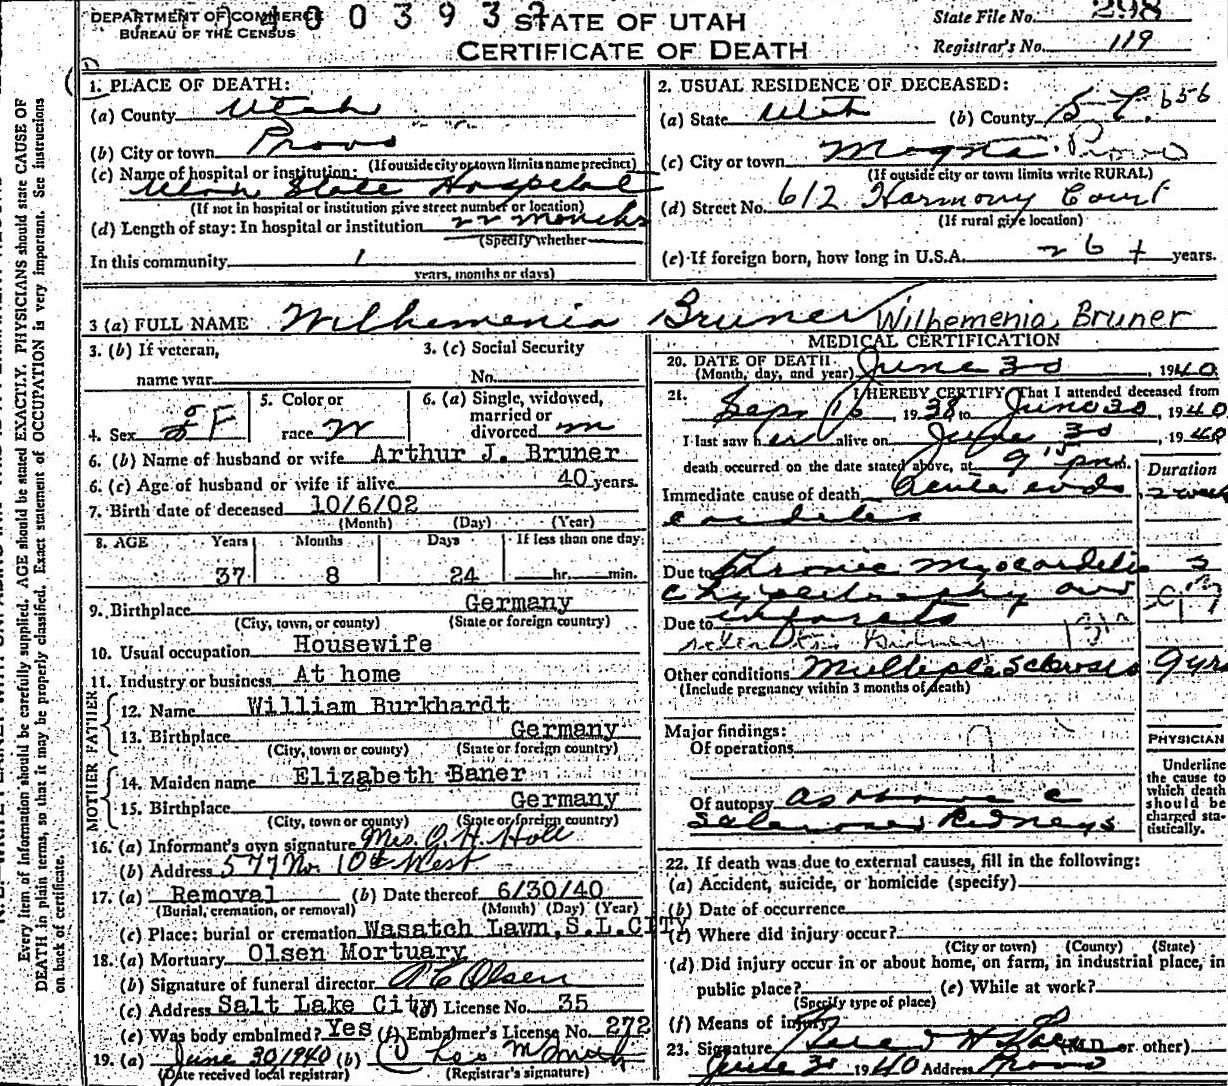 DEPARTMENT OF COMMERCE
BUREAU OF THE CENSUS
STATE OF UTAH
CERTIFICATE OF DEATH
State File No. 298
Registrar's No. 119
1. PLACE OF DEATH:
(a) County Utah
(b) City or town Provo
(If outside city or town limits name precinct)
(c) Name of hospital or institution:
Utah State Hospital
(If not in hospital or institution give street number or location)
(d) Length of stay: In hospital or institution 22 months
(Specify whether
In this community 1
years, months or days)
2. USUAL RESIDENCE OF DECEASED:
(a) State Utah (b) County S. L. 656
(c) City or town Magna Provo
(If outside city or town limits write RURAL)
(d) Street No. 612 Harmony Court
(If rural give location)
(e) If foreign born, how long in U.S.A. 26 + years.
3 (a) FULL NAME Wilhemenia Bruner Wilhemenia, Bruner
3. (b) If veteran,
name war
3. (c) Social Security
No.
4. Sex F
5. Color or
race W
6. (a) Single, widowed,
married or
divorced m
6. (b) Name of husband or wife Arthur J. Bruner
6. (c) Age of husband or wife if alive 40 years.
7. Birth date of deceased 10/6/02
(Month) (Day) (Year)
8. AGE Years Months Days If less than one day:
37 8 24 hr. min.
9. Birthplace Germany
(City, town, or county) (State or foreign country)
10. Usual occupation Housewife
11. Industry or business At home
FATHER
12. Name William Burkhardt
13. Birthplace Germany
(City, town or county) (State or foreign country)
MOTHER
14. Maiden name Elizabeth Baner
15. Birthplace Germany
(City, town or county) (State or foreign country)
16. (a) Informant's own signature Mrs. O. H. Holl
(b) Address 577 No. 10th West
17. (a) Removal (b) Date thereof 6/30/40
(Burial, cremation, or removal) (Month) (Day) (Year)
(c) Place: burial or cremation Wasatch Lawn, S.L.CITY
18. (a) Mortuary Olsen Mortuary
(b) Signature of funeral director A C Olsen
(c) Address Salt Lake City (d) License No. 35
(e) Was body embalmed? Yes (f) Embalmer's License No. 272
19. (a) June 30/1940 (b)
(Date received local registrar) (Registrar's signature)
MEDICAL CERTIFICATION
20. DATE OF DEATH
(Month, day, and year) June 30, 1940
21. I HEREBY CERTIFY That I attended deceased from
Sep. 16 1938 to June 30, 1940
I last saw her alive on June 30, 1940
death occurred on the date stated above, at 9 15 pm.
Duration
Immediate cause of death Acute endo 2 week
carditis
Due to Chronic Myocarditis
hypertrophy and
Due to infarcts
Kidney 131
Other conditions Multiple Sclerosis 9 yrs
(Include pregnancy within 3 months of death)
Major findings:
Of operations
Of autopsy As above c
Sclerosed Kidneys
PHYSICIAN
Underline
the cause to
which death
should be
charged sta-
tistically.
22. If death was due to external causes, fill in the following:
(a) Accident, suicide, or homicide (specify)
(b) Date of occurrence
(c) Where did injury occur?
(City or town) (County) (State)
(d) Did injury occur in or about home, on farm, in industrial place, in
public place? (e) While at work?
(Specify type of place)
(f) Means of injury
23. Signature (M.D. or other)
June 30 1940 Address Provo
Every item of information should be carefully supplied. AGE should be stated EXACTLY. PHYSICIANS should state CAUSE OF
DEATH in plain terms, so that it may be properly classified. Exact statement of OCCUPATION is very important. See instructions
on back of certificate.